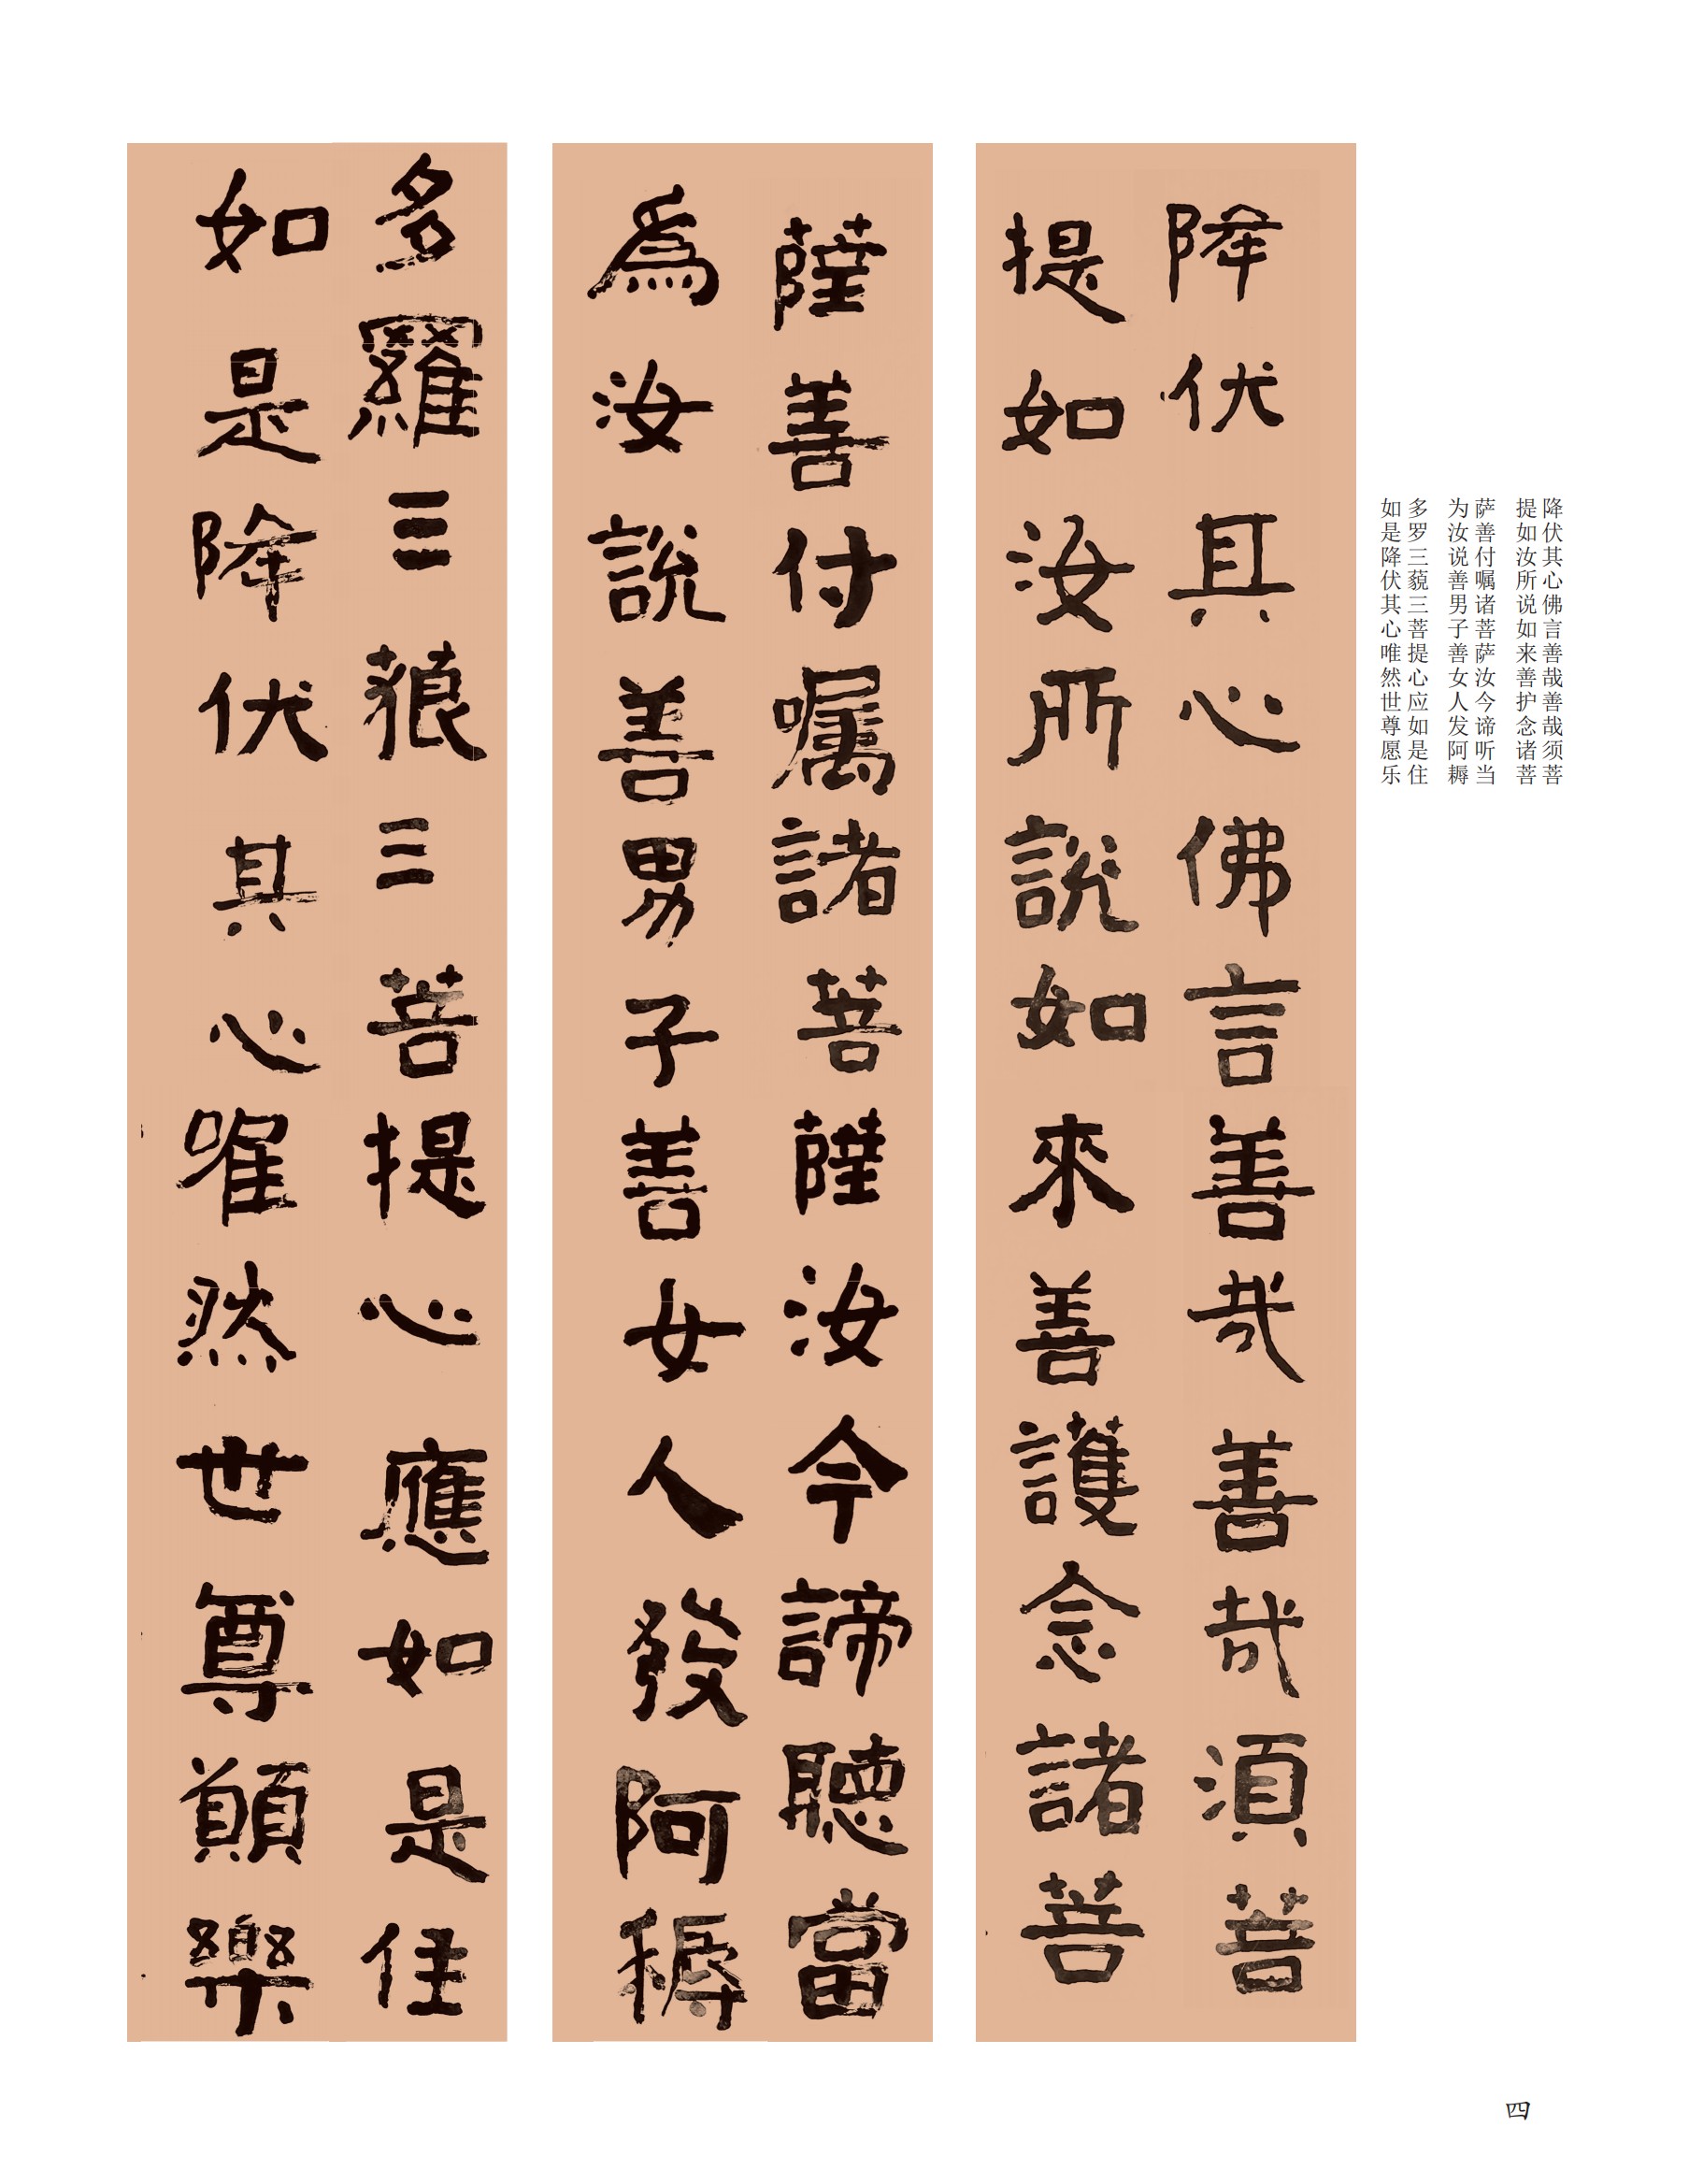 降伏其心佛言善哉善哉须菩
提如汝所说如来善护念诸菩
萨善付嘱诸菩萨汝今谛听当
为汝说善男子善女人发阿耨
多罗三藐三菩提心应如是住
如是降伏其心唯然世尊愿乐
降伏其心佛言善哉善哉須菩
提如汝所說如來善護念諸菩
薩善付嘱諸菩薩汝今諦聽當
爲汝說善男子善女人發阿耨
多羅三藐三菩提心應如是住
如是降伏其心唯然世尊願樂
四